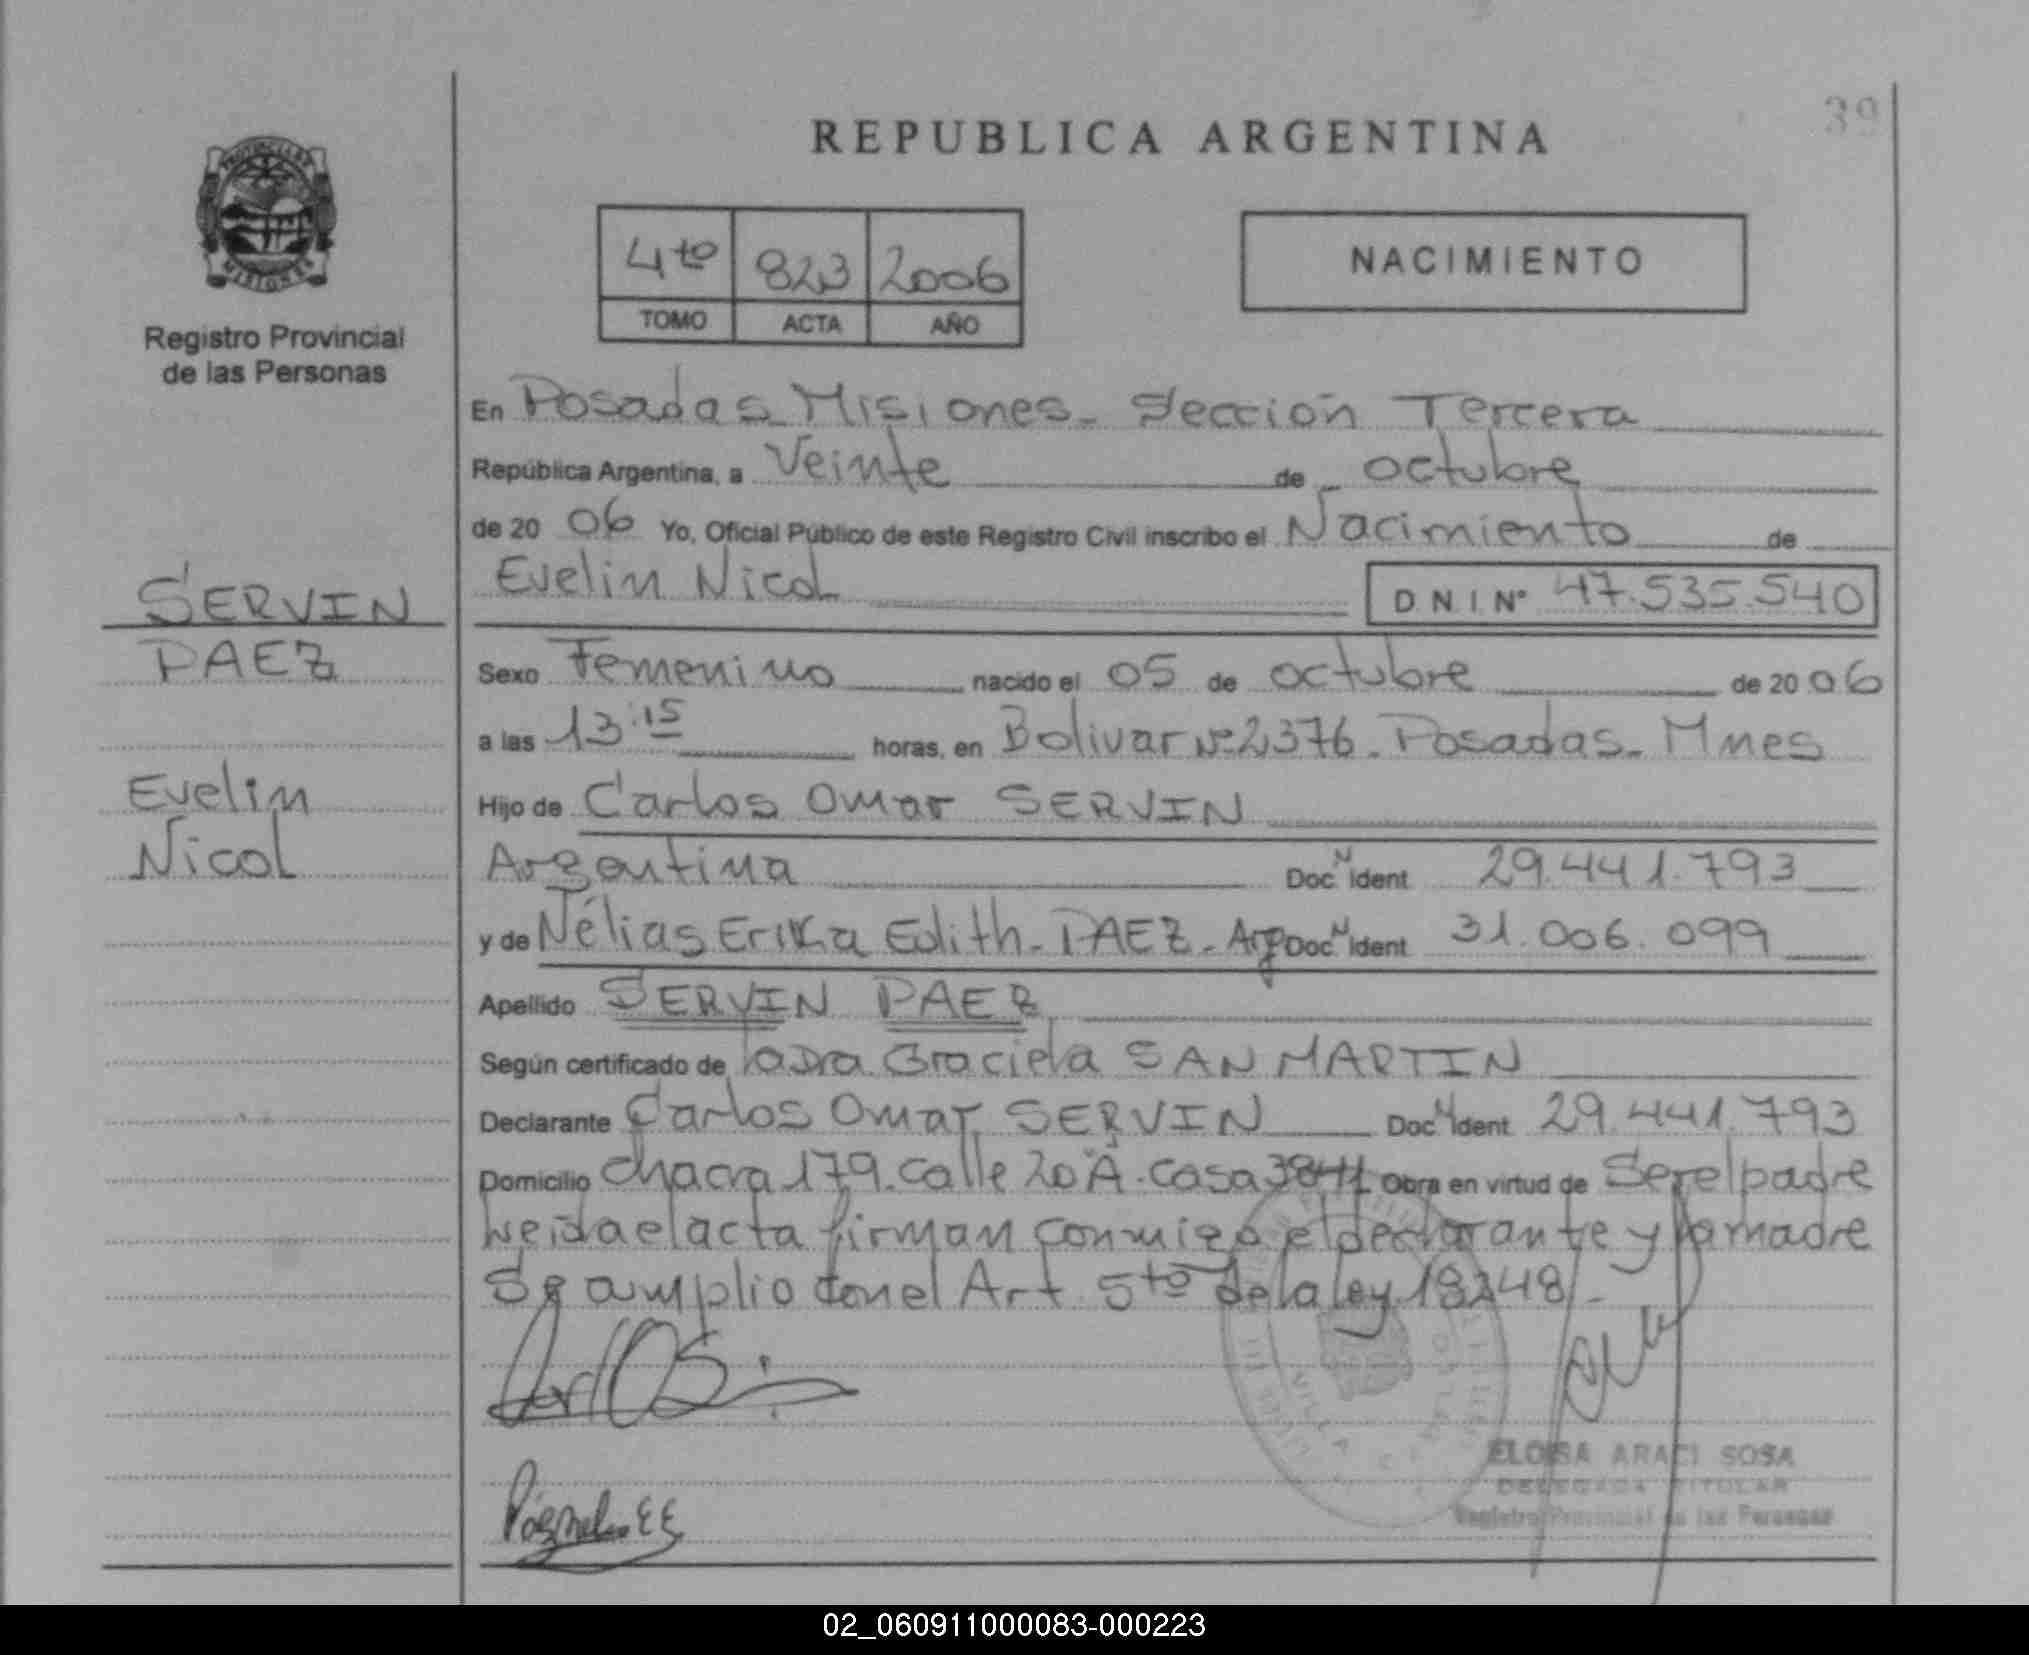 39
REPUBLICA ARGENTINA
PROVINCIA DE
MISIONES
Registro Provincial
de las Personas
4to 823 2006
TOMO ACTA AÑO
NACIMIENTO
En Posadas Misiones - Sección Tercera
República Argentina, a Veinte de octubre
de 2006 Yo, Oficial Público de este Registro Civil inscribo el Nacimiento de
Evelin Nicol D.N.I. N° 47.535.540
SERVIN
PAEZ
Evelin
Nicol
Sexo Femenino nacido el 05 de octubre de 2006
a las 13:15 horas, en Bolivar Nº 2376 - Posadas - Mnes
Hijo de Carlos Omar SERVIN
Argentina Doc. N Ident 29.441.793
y de Nélias Erika Edith - PAEZ - Arg Doc. N Ident 31.006.099
Apellido SERVIN PAEZ
Según certificado de la Dra Graciela SAN MARTIN
Declarante Carlos Omar SERVIN Doc. N Ident 29.441.793
Domicilio Chacra 179. calle 20 A. Casa Obra en virtud de Ser el padre
leida el acta firman conmigo el declarante y la madre
Se amplio con el Art 5to de la ley 18248/-
ELOISA ARACI SOSA
DELEGADA TITULAR
Registro Provincial de las Personas
02_060911000083-000223